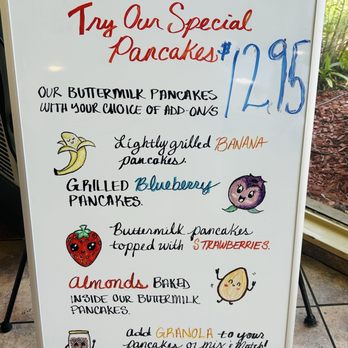 Try Our Special
Pancakes $12.95
OUR BUTTERMILK PANCAKES
WITH YOUR CHOICE OF ADD-ONS
Lightly grilled BANANA
pancakes.
GRILLED Blueberry
PANCAKES.
Buttermilk pancakes
topped with STRAWBERRIES.
Almonds BAKED
INSIDE OUR BUTTERMILK
PANCAKES.
add GRANOLA to your
pancakes or mix & Match!